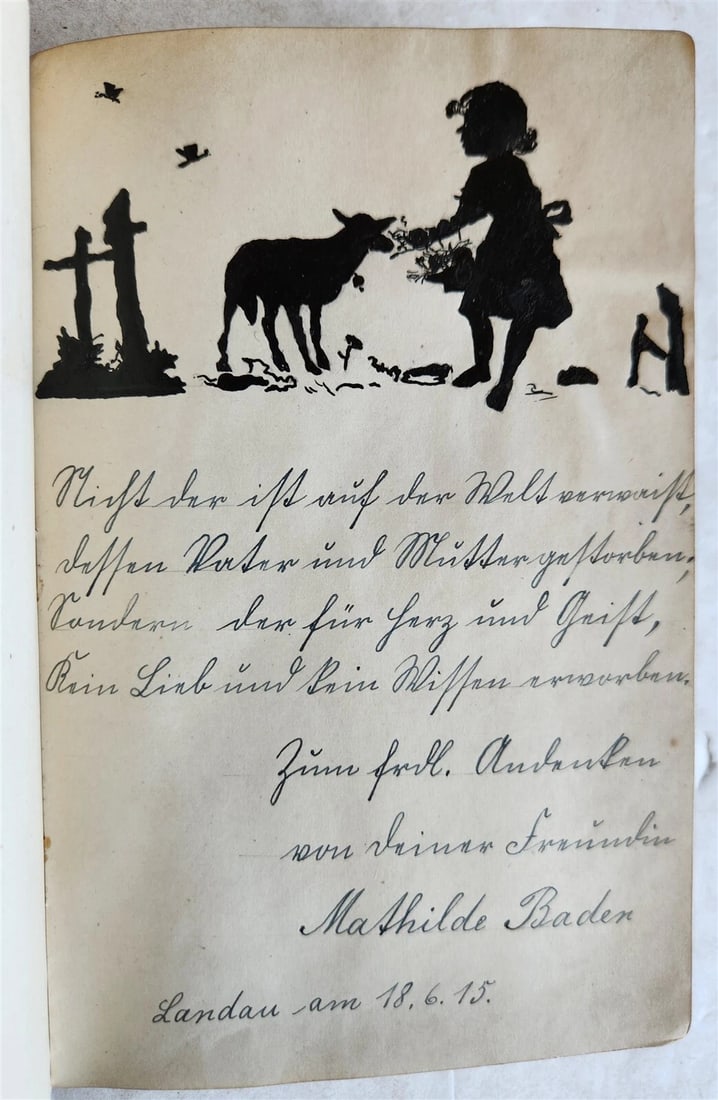 Nicht der ist auf der Welt verwaist,
dessen Vater und Mutter gestorben;
Sondern der für Herz und Geist,
Kein Lieb und kein Wissen erworben.
Zum frdl. Andenken
von deiner Freundin
Mathilde Baden
Landau am 18.6.15.